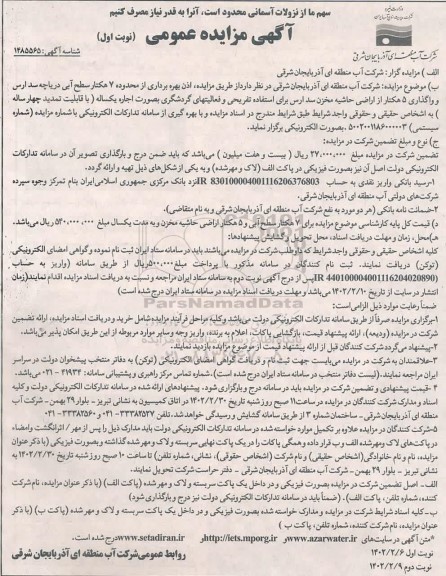 سهم ما از نزولات آسمانی محدود است، آنرا به قدر نیاز مصرف کنیم
آگهی مزایده عمومی (نوبت اول)
شرکت آب منطقه ای آذربایجان شرقی
شناسه آگهی: ۱۴۸۵۵۶۵
الف ) مزایده گزار: شرکت آب منطقه ای آذربایجان شرقی
ب) موضوع مزایده: شرکت آب منطقه ای آذربایجان شرقی در نظر دارد از طریق مزایده، اذن بهره برداری از محدوده ۷ هکتار سطح آبی دریاچه سد ارس
و واگذاری ۵ هکتار از اراضی حاشیه مخزن سد ارس برای استفاده تفریحی و فعالیتهای گردشگری بصورت اجاره یکساله ( با قابلیت تمدید چهار ساله
) به اشخاص حقیقی و حقوقی واجد شرایط طبق شرایط مندرج در اسناد مزایده و با بهره گیری از سامانه تدارکات الکترونیکی با شماره مزایده (شماره
سیستمی) ۵۰۰۲۰۰۱۱۸۶۰۰۰۰۰۳ .بصورت الکترونیکی برگزار نماید.
ج) نوع و مبلغ تضمین شرکت در مزایده:
تضمین شرکت در مزایده مبلغ ۲۷.۰۰۰.۰۰۰ ریال ( بیست و هفت میلیون ) می‌باشد که باید ضمن درج و بارگذاری تصویر آن در سامانه تدارکات
الکترونیکی دولت اصل آن نیز بصورت فیزیکی در پاکت الف (لاک و مهرشده) و به یکی از شکل‌های ذیل تهیه و ارائه گردد.
۱-رسید بانکی واریز نقدی به حساب IR 830100004001116206376803 نزد بانک مرکزی جمهوری اسلامی ایران بنام تمرکز وجوه سپرده
شرکت‌های دولتی آب منطقه ای آذربایجان شرقی.
۲-ضمانت نامه بانکی (هر دو مورد به نفع شرکت آب منطقه ای آذربایجان شرقی و به نام متقاضی).
د) قیمت کل پایه کارشناسی موضوع مزایده برای ۷ هکتار سطح آبی و ۵ هکتار اراضی حاشیه مخزن و به مدت یکسال مبلغ ۵۴۰.۰۰۰.۰۰۰ ریال می‌باشد.
ه-محل، زمان و مهلت دریافت اسناد، محل تحویل و گشایش پیشنهادها:
اشخاص حقیقی و حقوقی واجد شرایط که داوطلب شرکت در مزایده می‌باشند باید در سامانه ستاد ایران ثبت نام نموده و گواهی امضای الکترونیکی
(توکن) دریافت نمایند. ثبت نام کنندگان در سامانه مذکور با پرداخت مبلغ ۵۰۰.۰۰۰ ریال از طریق سامانه (واریز به حساب
IR 440100004001116204020890) پس از درج آگهی نوبت دوم به سامانه ستاد ایران مراجعه و نسبت به دریافت اسناد مزایده اقدام نمایند.(زمان
انتشار در سایت از تاریخ ۱۴۰۲/۲/۱۰ می‌باشد و مهلت دریافت اسناد مزایده در سامانه ستاد ایران درج شده است)
ضمناً رعایت موارد ذیل الزامی است:
۱-برگزاری مزایده صرفاً از طریق سامانه تدارکات الکترونیکی دولت می‌باشد و کلیه مراحل فرآیند مزایده شامل خرید و دریافت اسناد مزایده، ارائه تضمین
شرکت در مزایده (ودیعه)، ارائه پیشنهاد قیمت، بازگشایی پاکات، اعلام به برنده، واریز وجه و سایر موارد مربوطه از این طریق امکان پذیر می‌باشد.
۲-پیشنهاد می‌گردد شرکت کنندگان قبل از ارائه پیشنهاد قیمت از موضوع مزایده بازدید نمایند.
۳-علاقمندان به شرکت در مزایده می‌بایست جهت ثبت نام و دریافت گواهی امضای الکترونیکی (توکن) به دفاتر منتخب پیشخوان دولت در سراسر
ایران مراجعه نمایند.(لیست دفاتر منتخب در سامانه ستاد ایران درج شده است). شماره تماس مرکز راهبری و پشتیبانی سامانه: ۴۱۹۳۴ - ۰۲۱ می‌باشد.
۴-قیمت پیشنهادی و تضمین شرکت در مزایده باید در سامانه درج و بارگزاری شود. پیشنهادهای ارائه شده در سامانه تدارکات الکترونیکی دولت و کلیه
اسناد و مدارک شرکت کنندگان در مزایده در ساعت ۱۱ صبح روز شنبه تاریخ ۱۴۰۲/۲/۳۰ در اتاق کمیسیون به نشانی تبریز - بلوار ۲۹ بهمن - شرکت آب
منطقه ای آذربایجان شرقی - ساختمان شماره ۳ از طریق سامانه گشایش و رسیدگی خواهد شد. تلفن ۳۳۳۸۴۵۲۷-۰۴۱ و ۳۳۳۸۴۵۶۰-۰۴۱
۵-شرکت کنندگان در مزایده علاوه بر تکمیل موارد خواسته شده در سامانه تدارکات الکترونیکی دولت باید مدارک ذیل را پس از مهر / اثر انگشت و امضاء
در پاکت‌های لاک و مهر شده الف و ب قرار داده و همگی پاکات را در یک پاکت نهایی سربسته و لاک و مهر شده گذاشته و بصورت فیزیکی (با ذکر عنوان
مزایده، نام و نام خانوادگی (اشخاص حقیقی) و نام شرکت (اشخاص حقوقی)، نشانی، شماره تلفن) تا ساعت ۱۰ صبح روز شنبه تاریخ ۱۴۰۲/۲/۳۰ به
نشانی تبریز - بلوار ۲۹ بهمن - شرکت آب منطقه ای آذربایجان شرقی - دفتر حراست شرکت تحویل نمایند.
الف- اصل تضمین شرکت در مزایده بصورت فیزیکی و در داخل یک پاکت سربسته و لاک و مهر شده (پاکت الف) (با ذکر عنوان مزایده، نام شرکت
کننده، شماره تلفن، پاکت الف) . (ضمناً باید در سامانه تدارکات الکترونیکی دولت نیز درج و بارگذاری شود)
ب-کلیه اسناد شرکت در مزایده و مدارک خواسته شده بصورت فیزیکی و در داخل یک پاکت سربسته و لاک و مهر شده (پاکت ب) (با ذکر
عنوان مزایده، نام شرکت کننده، شماره تلفن، پاکت ب )
*متن آگهی در سایت‌های www.azarwater.ir و http://iets.mporg.ir و www.setadiran.ir درج شده است.
نوبت اول ۱۴۰۲/۲/۶
نوبت دوم ۱۴۰۲/۲/۹
روابط عمومی شرکت آب منطقه ای آذربایجان شرقی
ParsNamadData